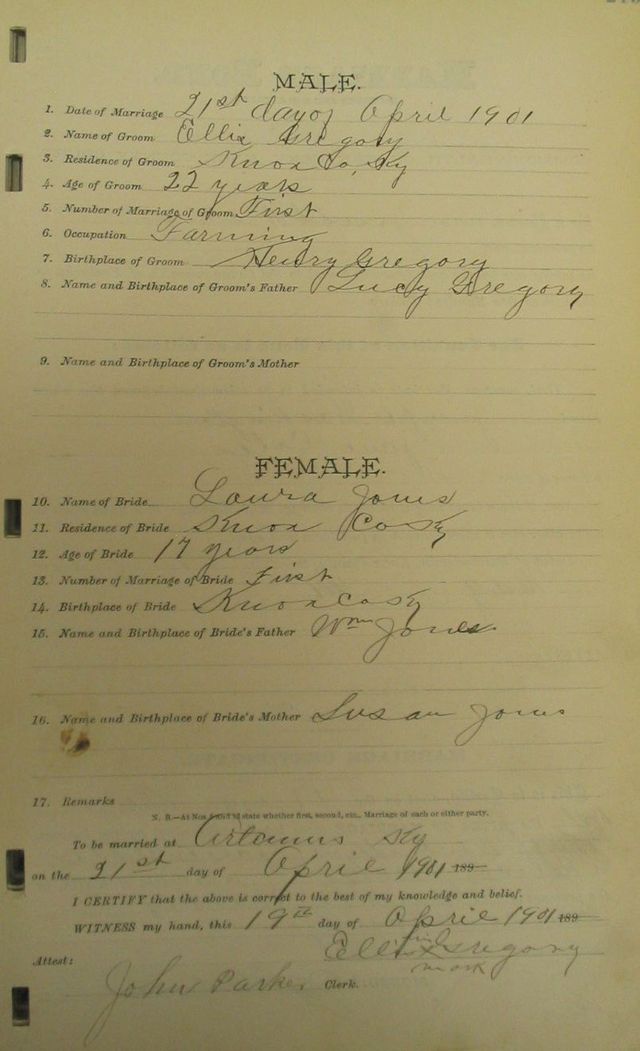 MALE.
1. Date of Marriage 21st day of April 1901
2. Name of Groom Ellis Gregory
3. Residence of Groom Knox Co, Ky
4. Age of Groom 22 years
5. Number of Marriage of Groom First
6. Occupation Farming
7. Birthplace of Groom Henry Gregory
8. Name and Birthplace of Groom's Father Lucy Gregory
9. Name and Birthplace of Groom's Mother
FEMALE.
10. Name of Bride Laura Jones
11. Residence of Bride Knox Co Ky
12. Age of Bride 17 years
13. Number of Marriage of Bride First
14. Birthplace of Bride Knox Co Ky
15. Name and Birthplace of Bride's Father Wm Jones
16. Name and Birthplace of Bride's Mother Susan Jones
17. Remarks
N. B.—At Nos state whether first, second, etc., Marriage of each or either party.
To be married at Artemus Ky
on the 21st day of April 1901 189
I CERTIFY that the above is correct to the best of my knowledge and belief.
WITNESS my hand, this 19th day of April 1901 189
Ellis Gregory
mark
Attest:
John Parker Clerk.